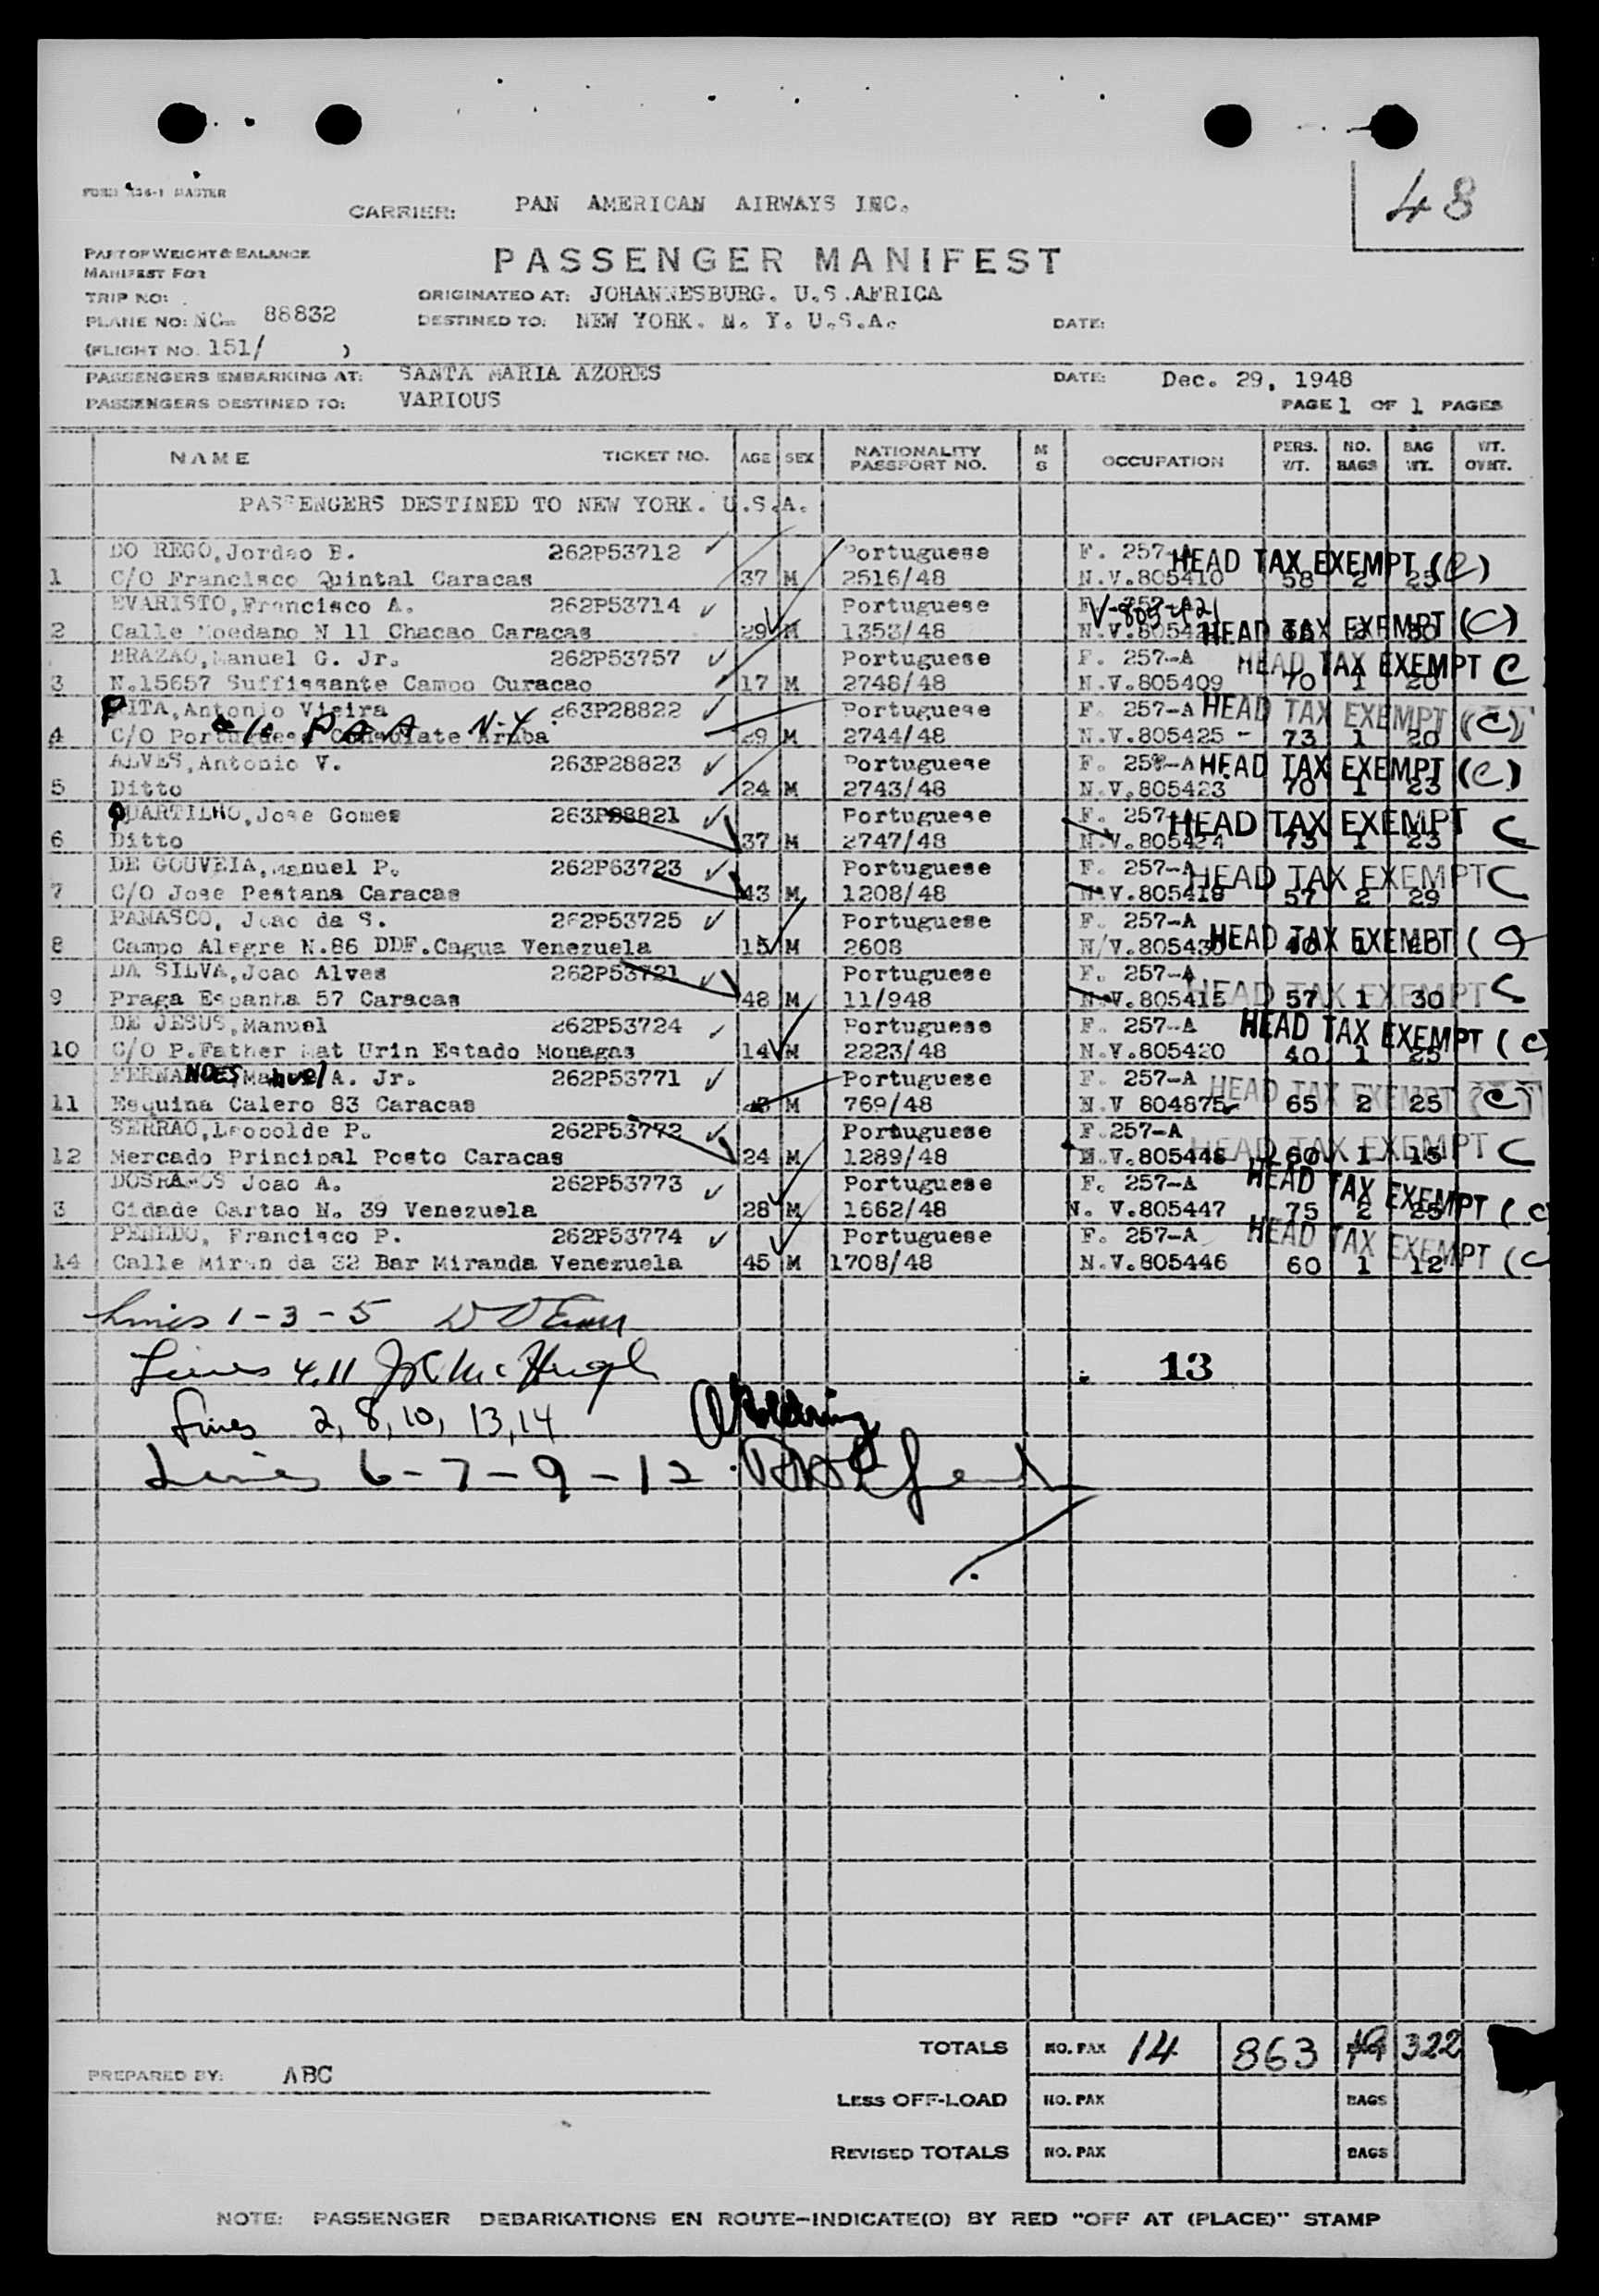 48
FORM 136-1 MASTER
CARRIER: PAN AMERICAN AIRWAYS INC.
PART OF WEIGHT & BALANCE
MANIFEST FOR
PASSENGER MANIFEST
TRIP NO:
ORIGINATED AT: JOHANNESBURG. U.S.AFRICA
PLANE NO: NC- 88832
DESTINED TO: NEW YORK. N. Y. U.S.A.
DATE:
(FLIGHT NO. 151/ )
PASSENGERS EMBARKING AT: SANTA MARIA AZORES
DATE: Dec. 29, 1948
PASSENGERS DESTINED TO: VARIOUS
PAGE 1 OF 1 PAGES
NAME TICKET NO. AGE SEX NATIONALITY PASSPORT NO. M S OCCUPATION PERS. WT. NO. BAGS BAG WT. WT. OVHT.
PASSENGERS DESTINED TO NEW YORK. U.S.A.
DO REGO,Jordao B. 262P53712 Portuguese F. 257-A HEAD TAX EXEMPT (C)
1 C/O Francisco Quintal Caracas 37 M 2516/48 N.V.805410 58 2 25
EVARISTO,Francisco A. 262P53714 Portuguese F. 257-A
2 Calle Moedano N 11 Chacao Caracas 29 M 1353/48 HEAD TAX EXEMPT (C)
BRAZAO,Manuel G. Jr. 262P53757 Portuguese F. 257-A HEAD TAX EXEMPT C
3 N.15657 Suffissante Campo Curacao 17 M 2748/48 N.V.805409 70 1 20
PITA,Antonio Vieira 263P28822 Portuguese F. 257-A HEAD TAX EXEMPT (C)
c/o P A A N.Y.
4 C/O Portuguese Consolate Aruba 29 M 2744/48 N.V.805425 - 73 1 20
ALVES,Antonio V. 263P28823 Portuguese F. 257-A HEAD TAX EXEMPT (C)
5 Ditto 24 M 2743/48 N.V.805423 70 1 23
QUARTILHO,Jose Gomes 263P28821 Portuguese F. 257-A HEAD TAX EXEMPT C
6 Ditto 37 M 2747/48 N.V.805424 73 1 23
DE GOUVEIA,Manuel P. 262P63723 Portuguese F. 257-A HEAD TAX EXEMPT C
7 C/O Jose Pestana Caracas 43 M 1208/48 N.V.805418 57 2 29
PANASCO, Joao da S. 262P53725 Portuguese F. 257-A
8 Campo Alegre N.86 DDF.Cagua Venezuela 15 M 2608 HEAD TAX EXEMPT (C)
DA SILVA,Joao Alves 262P53721 Portuguese F. 257-A HEAD TAX EXEMPT C
9 Praga Espanha 57 Caracas 48 M 11/948 N.V.805415 57 1 30
DE JESUS,Manuel 262P53724 Portuguese F. 257-A HEAD TAX EXEMPT (C)
10 C/O P.Father Mat Urin Estado Monagas 14 M 2223/48 N.V.805420 40 1 25
FERNANDES,Manuel A. Jr. 262P53771 Portuguese F. 257-A HEAD TAX EXEMPT (C)
11 Esquina Calero 83 Caracas M 769/48 N.V 804875 65 2 25
SERRAO,Leopolde P. 262P53772 Portuguese F.257-A HEAD TAX EXEMPT C
12 Mercado Principal Posto Caracas 24 M 1289/48 N.V.805448 60 1 15
DOSRAMOS Joao A. 262P53773 Portuguese F. 257-A HEAD TAX EXEMPT (C
3 Cidade Cartao N. 39 Venezuela 28 M 1662/48 N. V.805447 75 2 25
PENEDO, Francisco P. 262P53774 Portuguese F. 257-A HEAD TAX EXEMPT (C
14 Calle Miranda 32 Bar Miranda Venezuela 45 M 1708/48 N.V.805446 60 1 12
Lines 1-3-5
Lines 4,11 McHugh
13
Lines 2, 8, 10, 13, 14
Lines 6-7-9-12
TOTALS NO. PAX 14 863 19 322
PREPARED BY: ABC
LESS OFF-LOAD NO. PAX BAGS
REVISED TOTALS NO. PAX BAGS
NOTE: PASSENGER DEBARKATIONS EN ROUTE-INDICATE(D) BY RED "OFF AT (PLACE)" STAMP